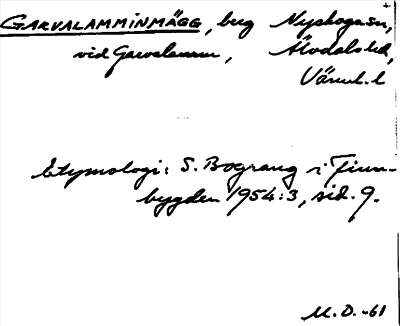 GARVALAMMINMÄGG, berg Nyskoga sn,
vid Garvalamm, Älvdals hd,
Värml. l
Etymologi: S. Bograng i Finn-
bygden 1954:3, sid. 9.
M.O.-61